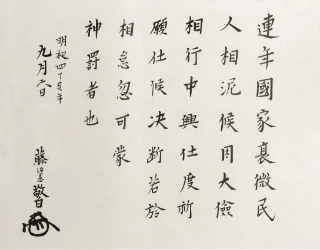 連年國家衰微民
人相泥候因大儉
相行中興仕度祈
願仕候決断若於
相怠忽可蒙
神罰者也
明和四丁亥年
九月六日
藤敬白